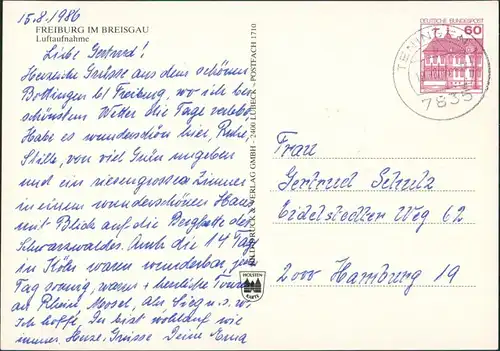 15.8.1986
FREIBURG IM BREISGAU
Luftaufnahme
Liebe Gertrud!
Herzliche Grüsse aus dem schönen
Bottingen b/ Freiburg, wo ich bei
schönstem Wetter die Tage verlebe.
Habe es wunderschön hier, Ruhe,
Stille, von viel Grün umgeben
und ein riesengrosses Zimmer
in einem wunderschönen Haus
mit Blick auf die Bergkette des
Schwarzwaldes. Auch die 14 Tage
in Köln waren wunderbar, je
Tag sonnig, warm + herrliche Touren
an Rhein, Mosel, Ahr, Sieg u.s.w.
Ich hoffe, Du bist wohlauf wie
immer. Herzl. Grüsse Deine Erna
DRUCK & VERLAG GMBH · 2400 LÜBECK · POSTFACH 1710
HOLSTEN
KARTE
DEUTSCHE BUNDESPOST
60
TENINGEN
7835
Frau
Gertrud Schulz
Eidelstedter Weg 62
2000 Hamburg 19